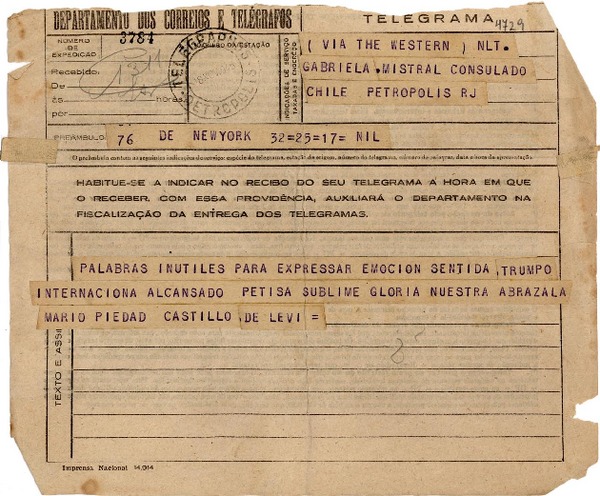 DEPARTAMENTO DOS CORREIOS E TELÉGRAFOS
TELEGRAMA
4729
3784
NÚMERO
DE
EXPEDIÇÃO
Recebido:
De
às horas,
por
DA ESTAÇÃO
PETROPOLIS
INDICAÇÕES DE SERVIÇO
TAXADAS E ENDEREÇO
( VIA THE WESTERN ) NLT.
GABRIELA MISTRAL CONSULADO
CHILE PETROPOLIS RJ
PREÂMBULO
76 DE NEWYORK 32=25=17= NIL
O preâmbulo contém as seguintes indicações de serviço: espécie do telegrama, estação de origem, número do telegrama, número de palavras, data e hora da apresentação.
HABITUE-SE A INDICAR NO RECIBO DO SEU TELEGRAMA A HORA EM QUE
O RECEBER. COM ESSA PROVIDÊNCIA, AUXILIARÁ O DEPARTAMENTO NA
FISCALIZAÇÃO DA ENTREGA DOS TELEGRAMAS.
TEXTO E ASSI
PALABRAS INUTILES PARA EXPRESSAR EMOCION SENTIDA TRUMPO
INTERNACIONA ALCANSADO PETISA SUBLIME GLORIA NUESTRA ABRAZALA
MARIO PIEDAD CASTILLO DE LEVI =
Imprensa Nacional 14.964